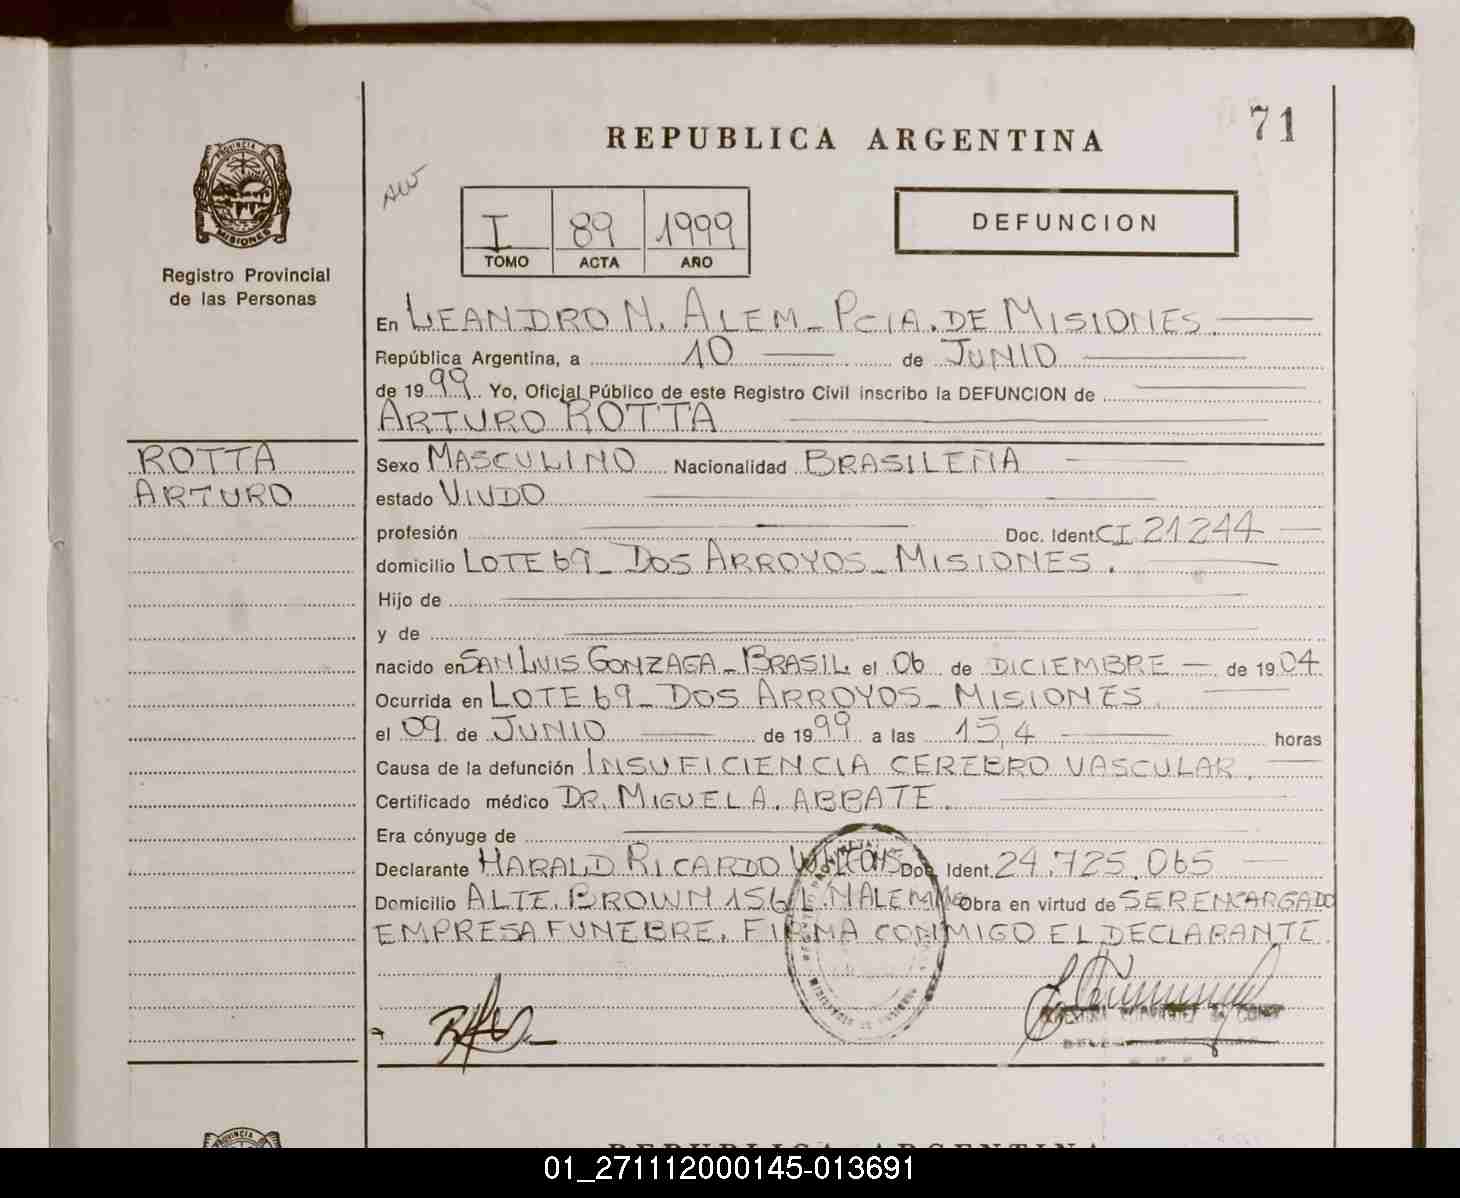 71
REPUBLICA ARGENTINA
DEFUNCION
I 89 1999
TOMO ACTA AÑO
PROVINCIA
MISIONES
Registro Provincial
de las Personas
En LEANDRO N. ALEM - PCIA. DE MISIONES.
República Argentina, a 10 de JUNIO
de 1999. Yo, Oficial Público de este Registro Civil inscribo la DEFUNCION de
ARTURO ROTTA
ROTTA
ARTURO
Sexo MASCULINO Nacionalidad BRASILEÑA
estado VIUDO
profesión Doc. Ident. CI 21244
domicilio LOTE 69 - DOS ARROYOS - MISIONES.
Hijo de
y de
nacido en SAN LUIS GONZAGA - BRASIL el 06 de DICIEMBRE de 1904
Ocurrida en LOTE 69 - DOS ARROYOS - MISIONES
el 09 de JUNIO de 1999 a las 15,4 horas
Causa de la defunción INSUFICIENCIA CEREBRO VASCULAR.
Certificado médico DR. MIGUEL A. ABBATE.
Era cónyuge de
Declarante HARALD RICARDO Doc. Ident. 24.725.065
Domicilio ALTE. BROWN 156 L.N ALEM Mnes Obra en virtud de SER ENCARGADO
EMPRESA FUNEBRE. FIRMA CONMIGO EL DECLARANTE.
PROVINCIA
REPUBLICA ARGENTINA
01_271112000145-013691